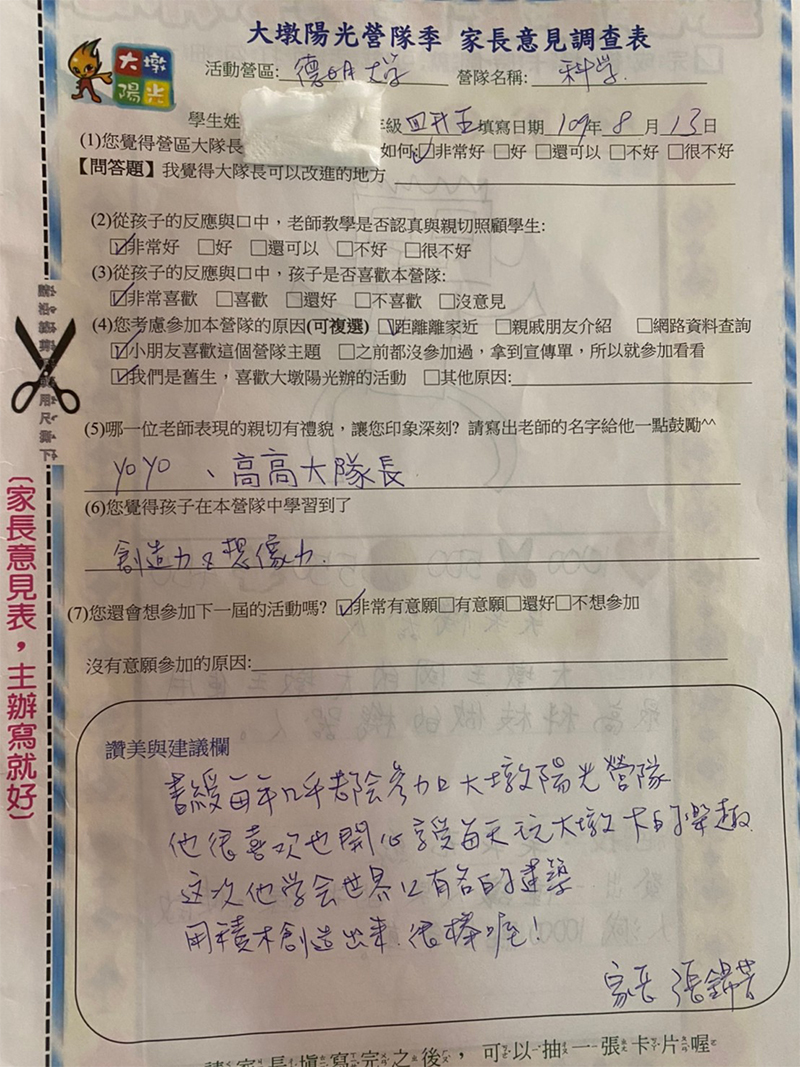 大墩陽光營隊季 家長意見調查表
大墩陽光
活動營區:德明大学 營隊名稱:科学
學生姓 年級四升五填寫日期109年8月13日
(1)您覺得營區大隊長 如何☑非常好 □好 □還可以 □不好 □很不好
【問答題】我覺得大隊長可以改進的地方
(2)從孩子的反應與口中,老師教學是否認真與親切照顧學生:
☑非常好 □好 □還可以 □不好 □很不好
(3)從孩子的反應與口中,孩子是否喜歡本營隊:
☑非常喜歡 □喜歡 □還好 □不喜歡 □沒意見
(4)您考慮參加本營隊的原因(可複選) ☑距離離家近 □親戚朋友介紹 □網路資料查詢
☑小朋友喜歡這個營隊主題 □之前都沒參加過,拿到宣傳單,所以就參加看看
☑我們是舊生,喜歡大墩陽光辦的活動 □其他原因:
(5)哪一位老師表現的親切有禮貌,讓您印象深刻? 請寫出老師的名字給他一點鼓勵^^
yoyo、高高大隊長
(6)您覺得孩子在本營隊中學習到了
創造力及想像力.
(7)您還會想參加下一屆的活動嗎? ☑非常有意願□有意願□還好□不想參加
沒有意願參加的原因:
讚美與建議欄
書緩每年几乎都会參加大墩陽光營隊
他很喜欢也開心享受每天玩大墩卡的樂趣
这次他学会世界上有名的建築
用積木創造出來.很棒喔!
家長 張錦芳
請家長填寫完之後,可以抽一張卡片喔
(家長意見表,主辦寫就好)